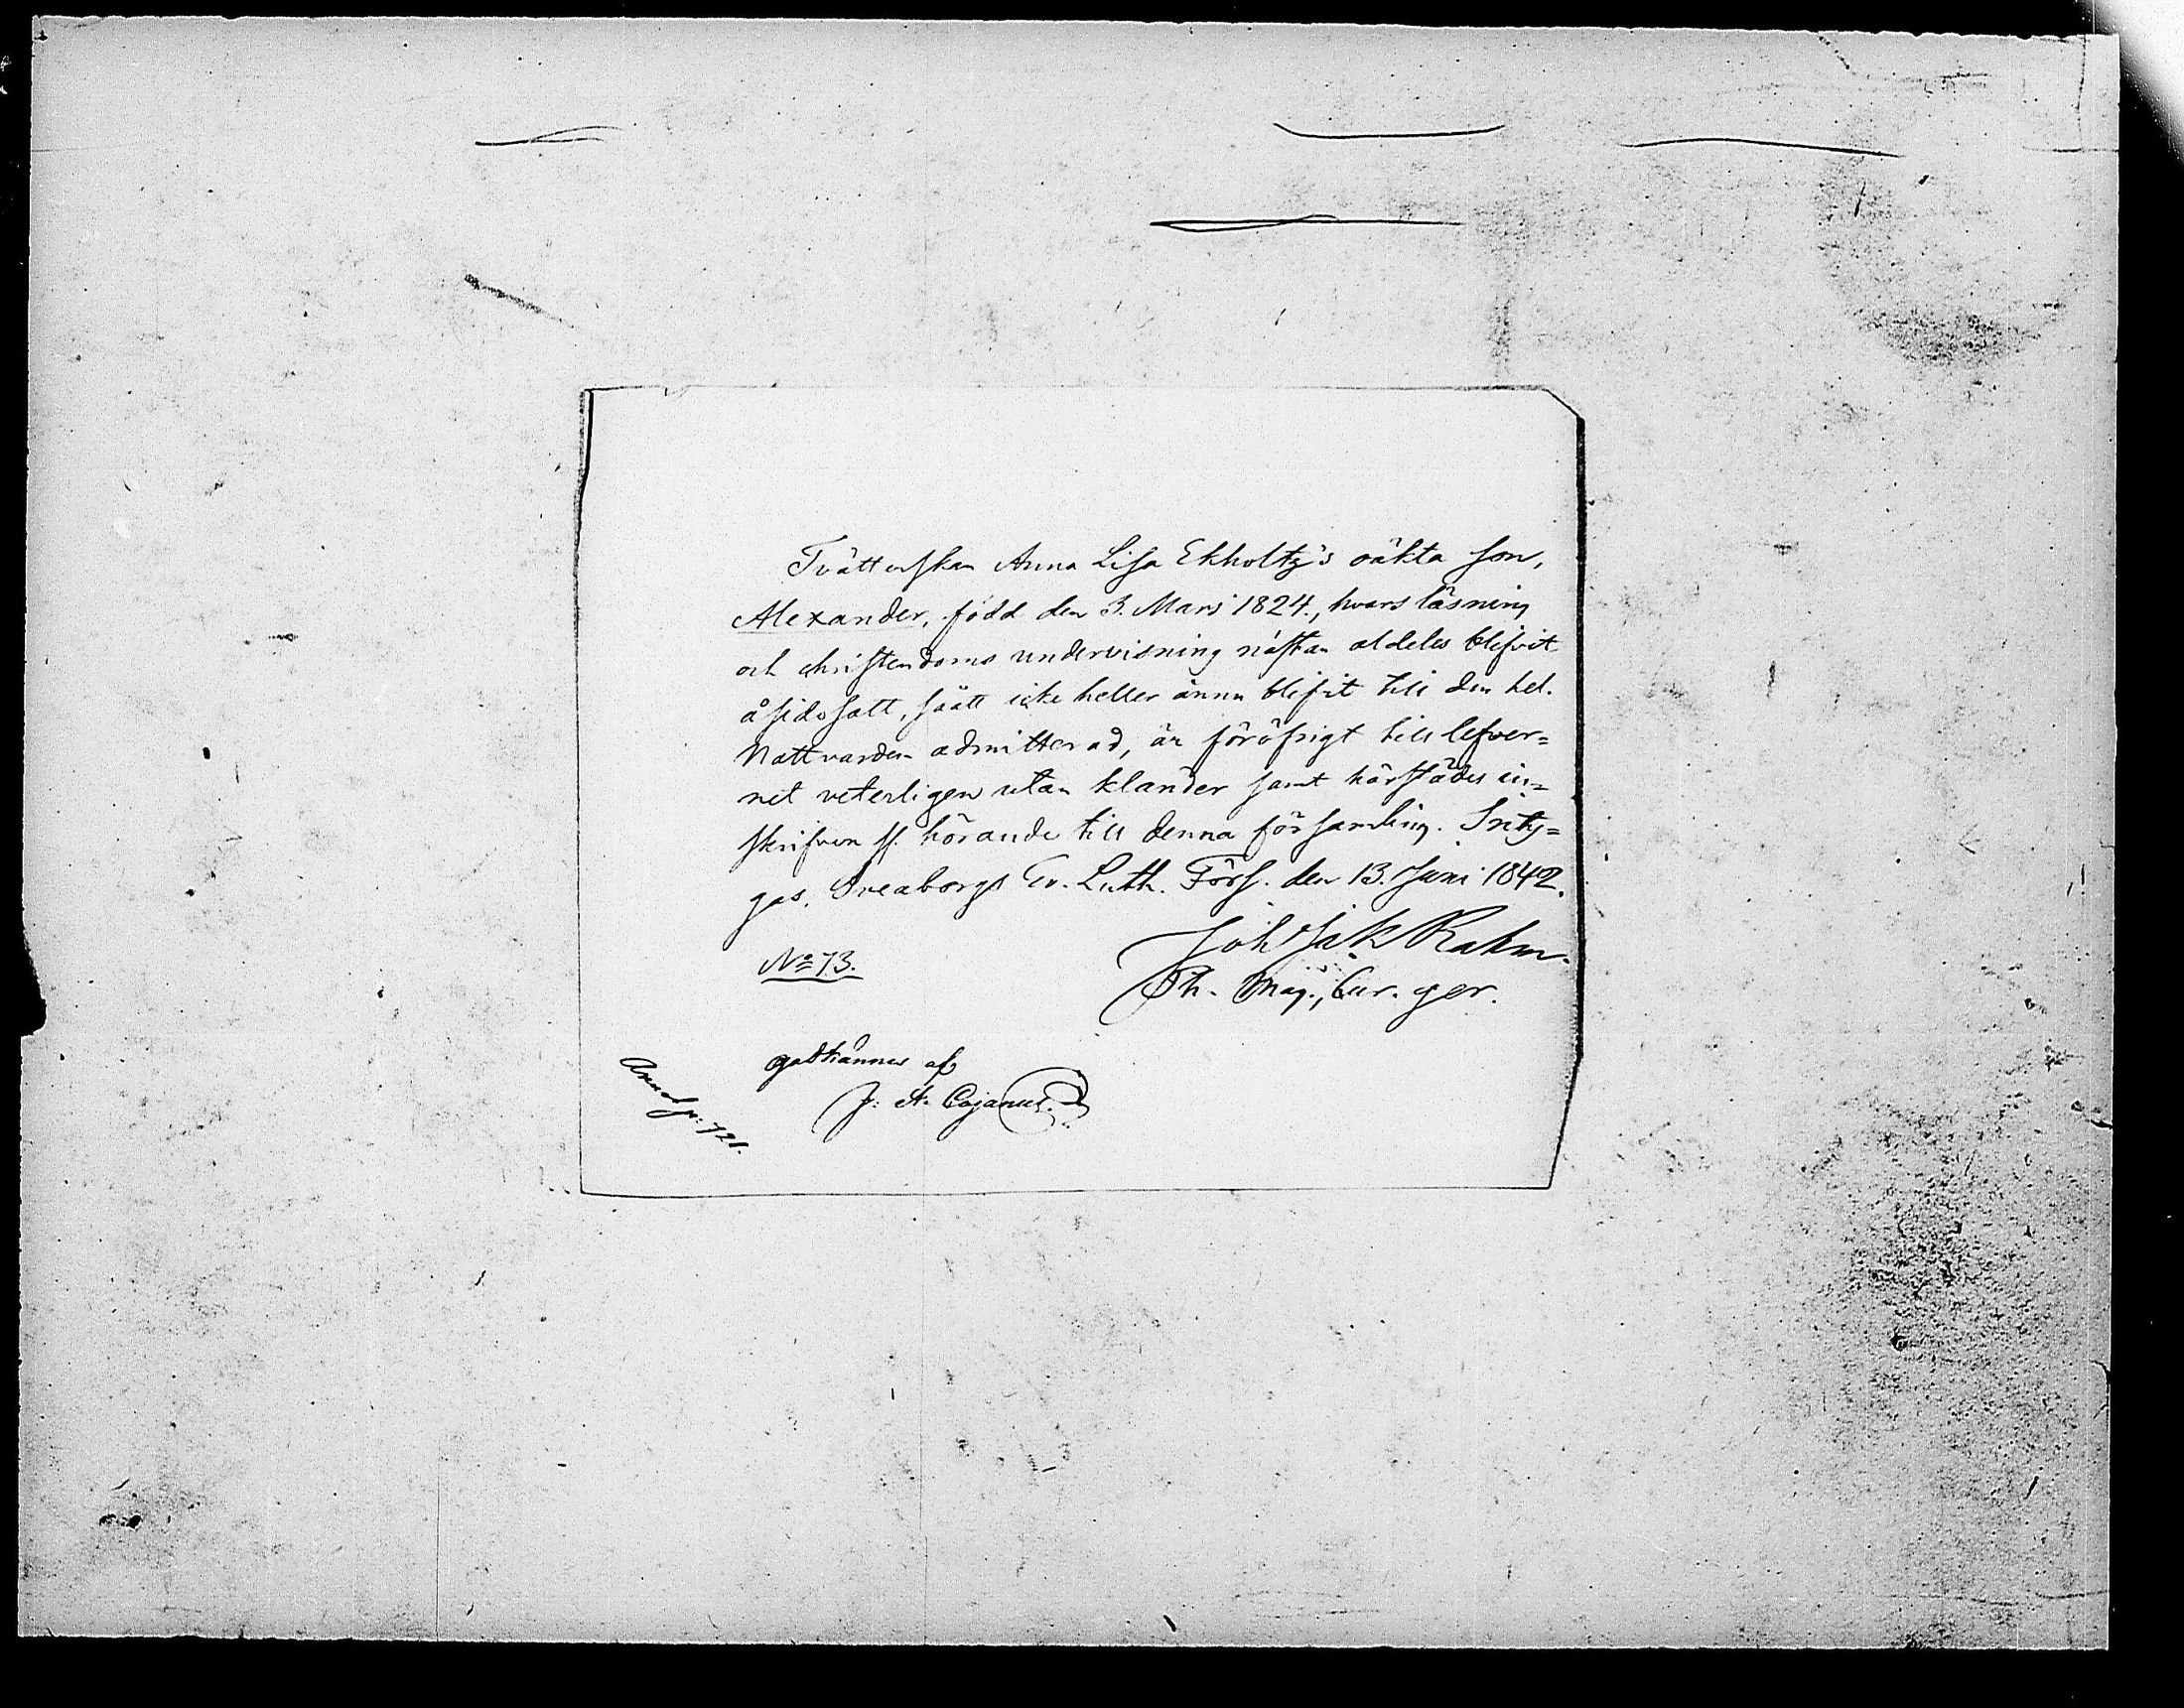 Tvätterskan Anna Lisa Ekholtz's oäkta son,
Alexander, född den 3. Mars 1824., hvars läsning
och christendoms undervisning nästan aldeles blifvit
åsidosatt, så att icke heller ännu blifvit till den hel.
Nattvarden admitterad, är föröfrigt till lefver=
net veterligen utan klander samt härstädes in=
skrifven ss. hörande till denna församling. Intyg=
gas. Sveaborgs Ev. Luth. Förs. den 13. Juni 1842.
Joh Jak Rahm.
No 73.
Ph. Mag., Cur. ger.
godkännes af
J: A. Cajanus.
Anm. p: 721.